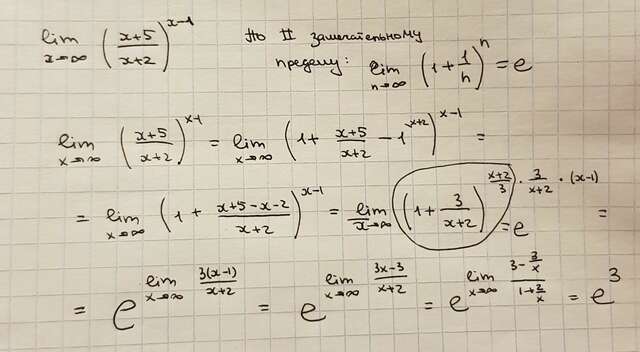 lim x→∞ ((x+5)/(x+2))^(x-1) По II замечательному
пределу: lim n→∞ (1 + 1/n)^n = e
lim x→∞ ((x+5)/(x+2))^(x-1) = lim x→∞ (1 + (x+5)/(x+2) - 1^(x+2))^(x-1) =
= lim x→∞ (1 + (x+5-x-2)/(x+2))^(x-1) = lim x→∞ ((1 + 3/(x+2))^((x+2)/3 · 3/(x+2) · (x-1)) = e =
= e^(lim x→∞ 3(x-1)/(x+2)) = e^(lim x→∞ (3x-3)/(x+2)) = e^(lim x→∞ (3 - 3/x)/(1 + 2/x)) = e^3